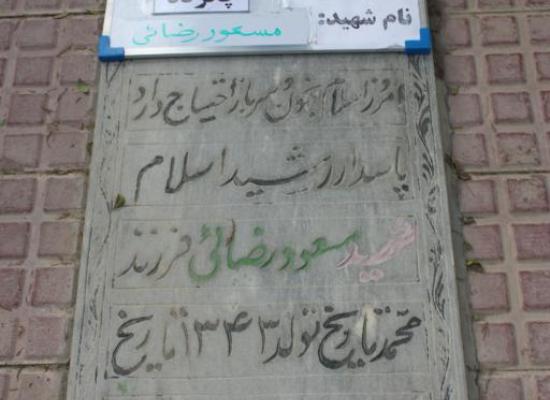 نام شهید:
مسعود رضائی
امروز اسلام بخون سرباز احتیاج دارد
پاسدار رشید اسلام
شهید مسعود رضائی فرزند
محمد تاریخ تولد ۱۳۴۳ تاریخ